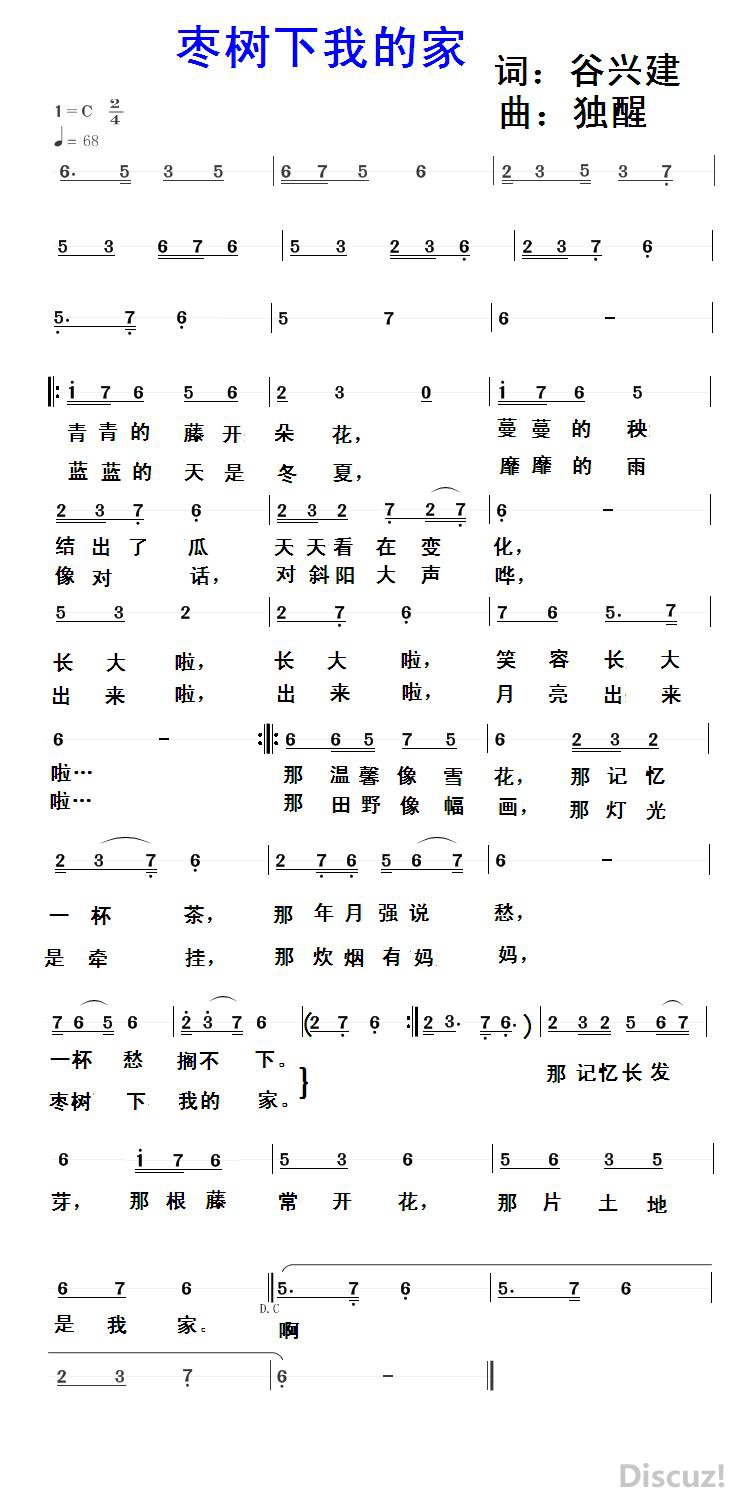 枣树下我的家
词：谷兴建
曲：独醒
1=C 2/4
♩= 68
6. 5 3 5 | 6 7 5 6 | 2 3 5 3 7 |
5 3 6 7 6 | 5 3 2 3 6 | 2 3 7 6 |
5. 7 6 | 5 7 | 6 – |
‖: 1 7 6 5 6 | 2 3 0 | 1 7 6 5 |
青青的藤开朵花， 蔓蔓的秧
蓝蓝的天是冬夏， 靡靡的雨
2 3 7 6 | 2 3 2 7 2 7 | 6 – |
结出了瓜 天天看在变化，
像对话， 对斜阳大声哗，
5 3 2 | 2 7 6 | 7 6 5. 7 |
长大啦， 长大啦， 笑容长大
出来啦， 出来啦， 月亮出来
6 – :‖: 6 6 5 7 5 | 6 2 3 2 |
啦… 那温馨像雪花，那记忆
啦… 那田野像幅画，那灯光
2 3 7 6 | 2 7 6 5 6 7 | 6 – |
一杯茶， 那年月强说愁，
是牵挂， 那炊烟有妈妈，
7 6 5 6 | 2 3 7 6 | (2 7 6 :‖ 2 3. 7 6.) | 2 3 2 5 6 7 |
一杯愁搁不下。 那记忆长发
枣树下我的家。}
6 1 7 6 | 5 3 6 | 5 6 3 5 |
芽，那根藤常开花， 那片土地
6 7 6 ‖ 5. 7 6 | 5. 7 6 |
D.C
是我家。 啊
2 3 7 | 6 – ‖
Discuz!